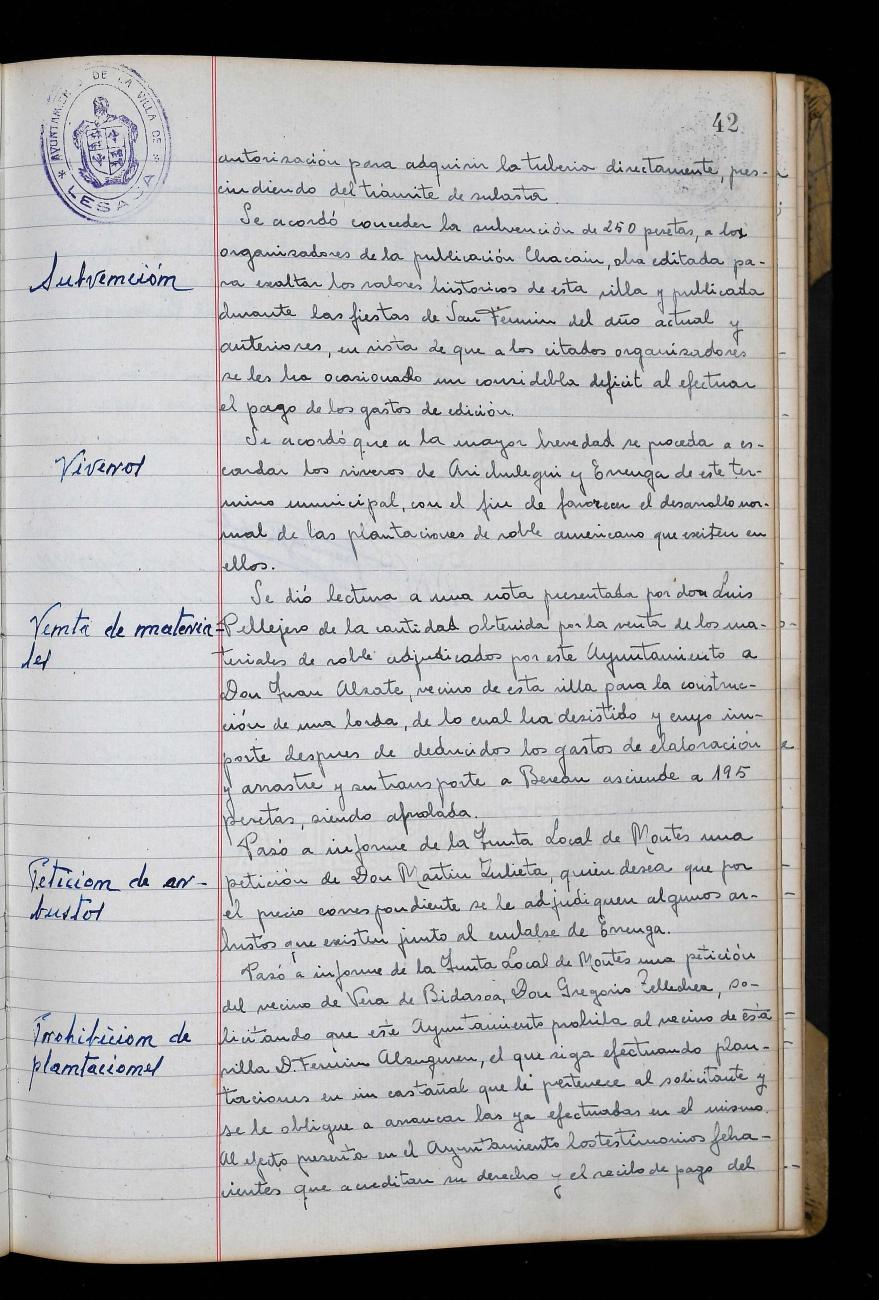 42
AYUNTAMIENTO DE LA VILLA DE
* LESACA *
autorización para adquirir la tuberia directamente, pres-
cindiendo del trámite de subasta.
Subvención
Se acordó conceder la subvención de 250 pesetas, a los
organizadores de la publicación Chacain, obra editada pa-
ra exaltar los valores historicos de esta villa y publicada
durante las fiestas de San Fermin del año actual y
anteriores, en vista de que a los citados organizadores
se les ha ocasionado un considebla deficit al efectuar
el pago de los gastos de edición.
Viveros
Se acordó que a la mayor brevedad se proceda a es-
cardar los viveros de Arichulegui y Errenga de este ter-
mino municipal, con el fin de favorecer el desarrollo nor-
mal de las plantaciones de roble americano que existen en
ellos.
Venta de materia-
les
Se dió lectura a una nota presentada por don Luis
Pellejero de la cantidad obtenida por la venta de los ma-
teriales de roble adjudicados por este Ayuntamiento a
Don Juan Alzate, vecino de esta villa para la construc-
ción de una borda, de lo cual ha desistido y cuyo im-
porte despues de deducidos los gastos de elaboración
y arrastre y su transporte a Berean asciende a 195
pesetas, siendo aprobada.
Peticion de ar-
bustos
Pasó a informe de la Junta Local de Montes una
petición de Don Martin Zulieta, quien desea que por
el precio correspondiente se le adjudiquen algunos ar-
bustos que existen junto al embalse de Errenga.
Prohibicion de
plantaciones
Pasó a informe de la Junta Local de Montes una petición
del vecino de Vera de Bidasoa, Don Gregorio Tellechea, so-
licitando que este Ayuntamiento prohiba al vecino de esta
villa D. Fermin Alzuguren, el que siga efectuando plan-
taciones en un castañal que le pertenece al solicitante y
se le obligue a arrancar las ya efectuadas en el mismo.
Al efecto presenta en el Ayuntamiento los testimonios feha-
cientes que acreditan su derecho y el recibo de pago del